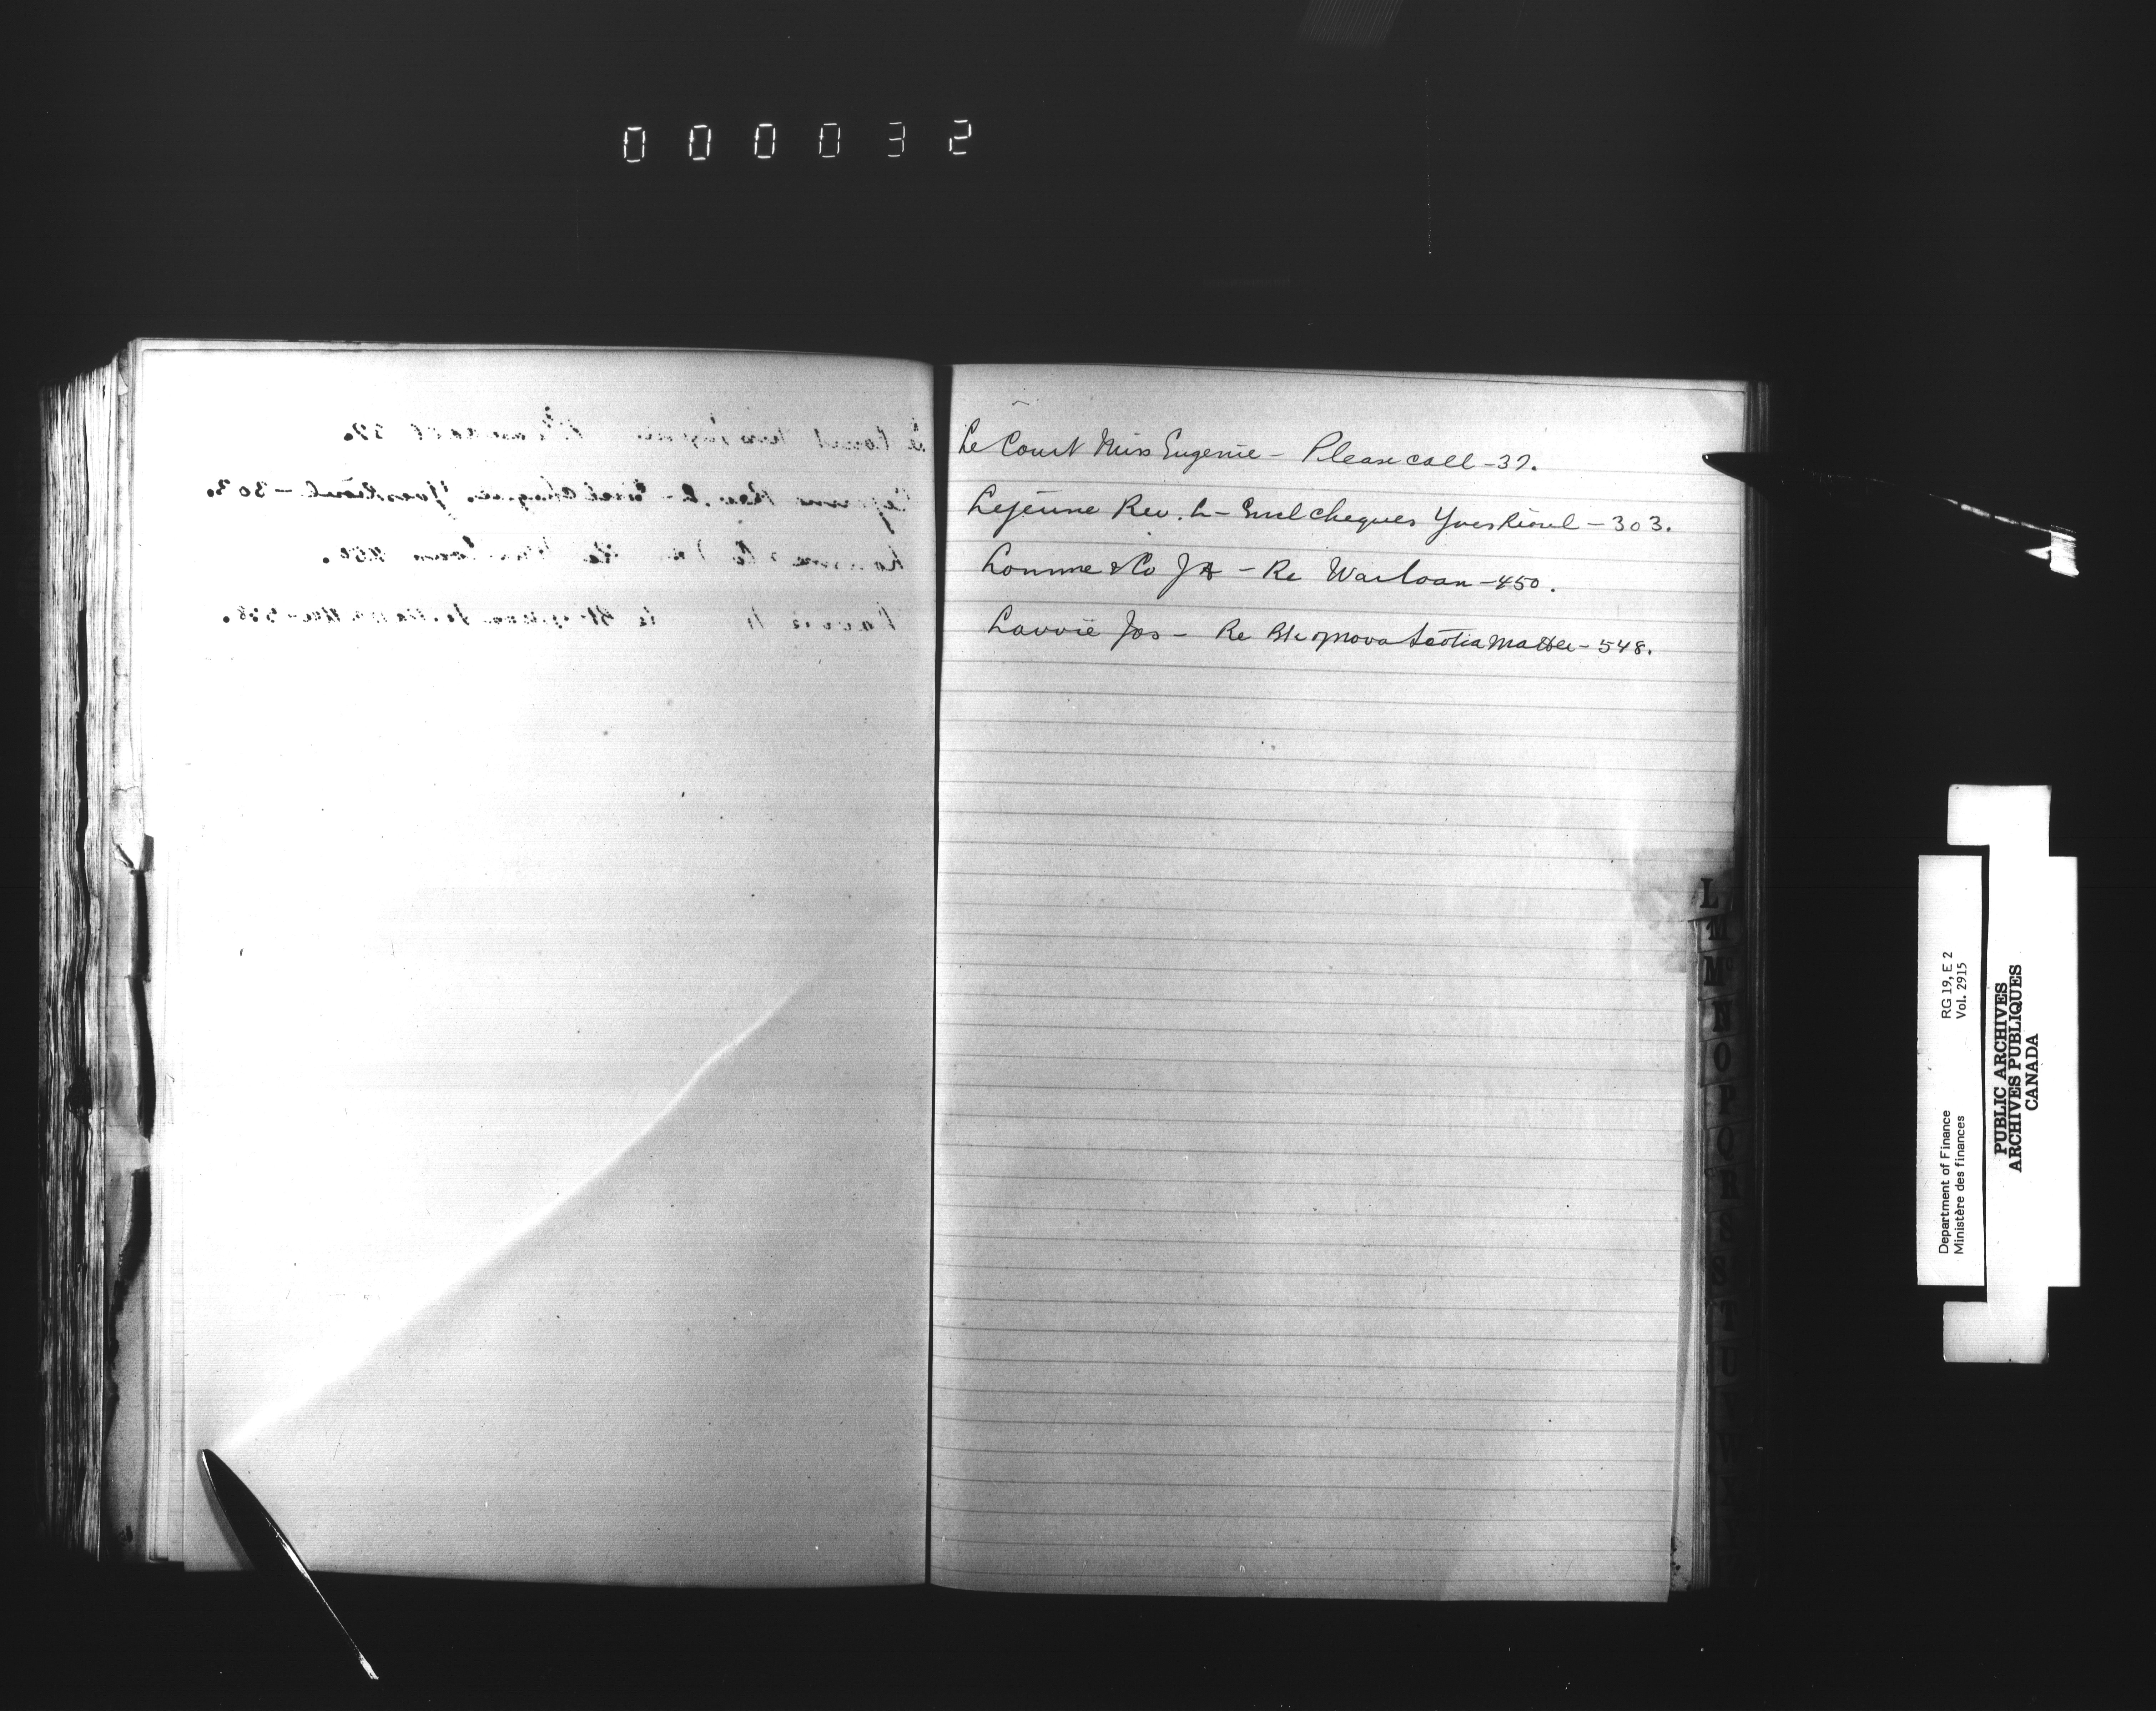 000032
Le Court Miss Eugenie - Please call - 37.
Lejeune Rev. L - Encl cheques Yves Rioul - 303.
& Co J A - Re War loan - 450.
Lavoie Jos - Re Bk of Nova Scotia Matter - 548.
L
M
Mc
N
O
P
Q
R
S
T
U
W
Department of Finance
Ministère des finances
RG 19, E 2
Vol. 2915
PUBLIC ARCHIVES
ARCHIVES PUBLIQUES
CANADA